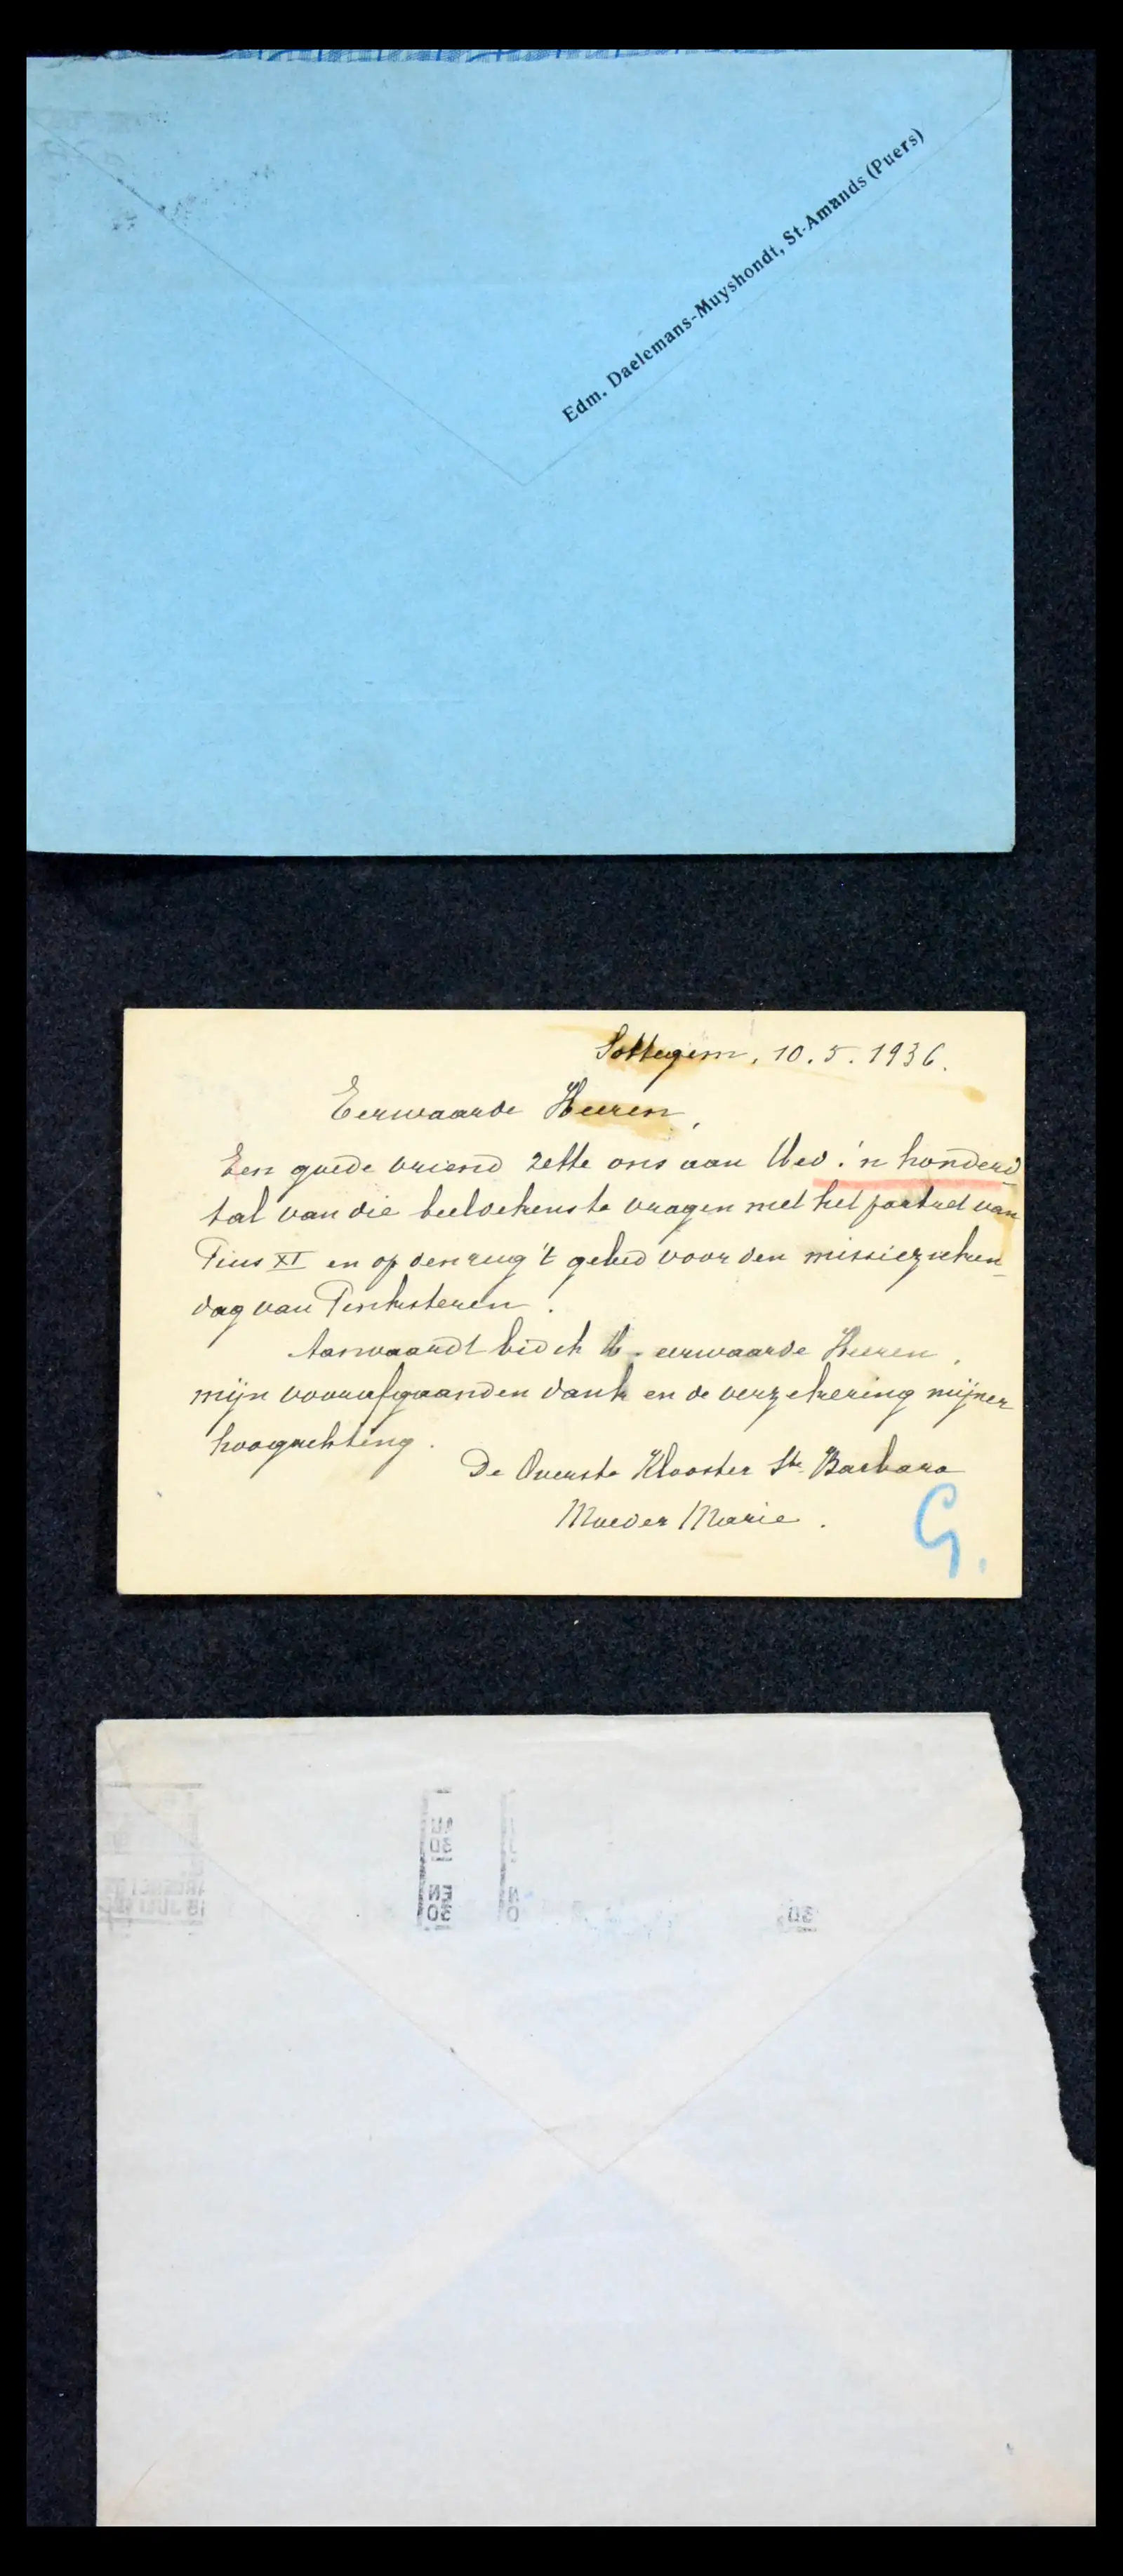 Edm. Daelemans-Muyshondt, St-Amands (Puers)
Sottegem, 10.5.1936.
Eerwaarde Heeren,
Een goede vriend zette ons aan U ev. 'n honderd
tal van die beeldekens te vragen met het portret van
Pius XI en op den rug 't gebed voor den missiezieken
dag van Pinksteren.
Aanvaardt bid ik U. eerwaarde Heeren,
mijn voorafgaanden dank en de verzekering mijner
hoogachting.
De Overste Klooster Ste Barbara
Moeder Marie.
G.
30
EN
30